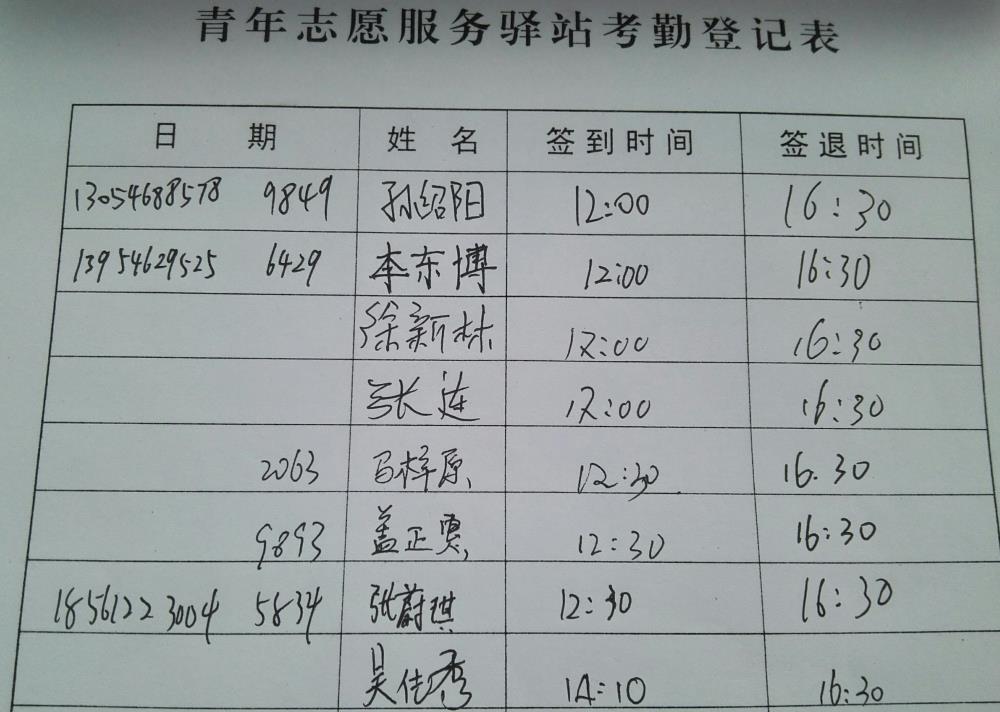 青年志愿服务驿站考勤登记表
日 期 姓 名 签到时间 签退时间
13054688578 9849 孙绍阳 12:00 16:30
13954629525 6429 李东博 12:00 16:30
徐新林 12:00 16:30
张涟 12:00 16:30
2063 马梓原 12:30 16.30
9893 盖正贾 12:30 16:30
18561223004 5834 张蔚琪 12:30 16:30
吴佳秀 14:10 16:30